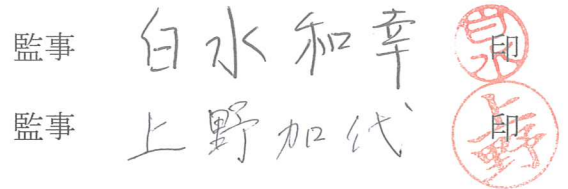 監事 白水和幸 印
監事 上野加代 印